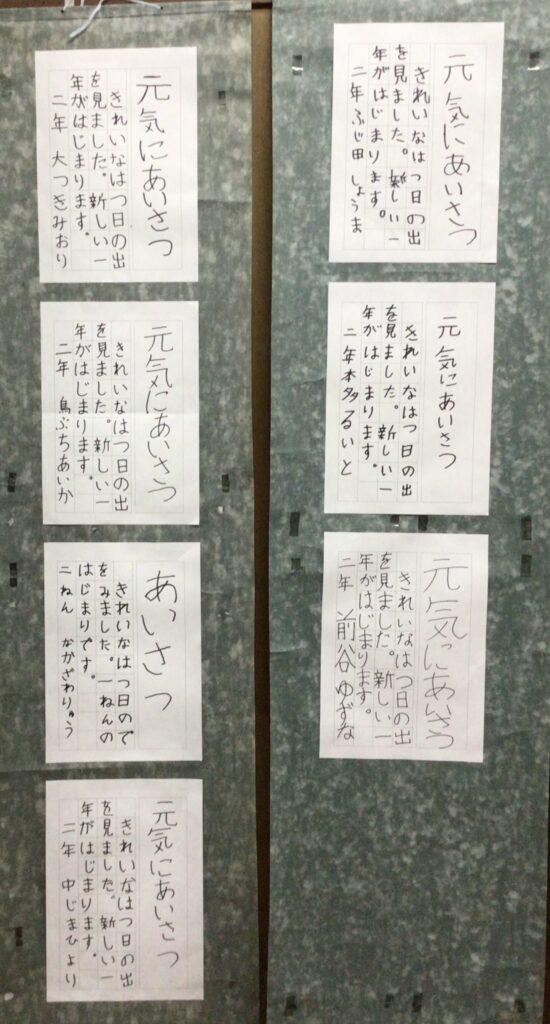 元気にあいさつ
きれいなはつ日の出
を見ました。新しい一
年がはじまります。
二年 ふじ田 しょうま
元気にあいさつ
きれいなはつ日の出
を見ました。新しい一
年がはじまります。
二年 本多 るいと
元気にあいさつ
きれいなはつ日の出
を見ました。新しい一
年がはじまります。
二年 前谷 ゆずな
元気にあいさつ
きれいなはつ日の出
を見ました。新しい一
年がはじまります。
二年 大つきみおり
元気にあいさつ
きれいなはつ日の出
を見ました。新しい一
年がはじまります。
二年 鳥ぶちあいか
あいさつ
きれいなはつ日ので
をみました。一ねんの
はじまりです。
二ねん ながざわりゅう
元気にあいさつ
きれいなはつ日の出
を見ました。新しい一
年がはじまります。
二年 中じまひより